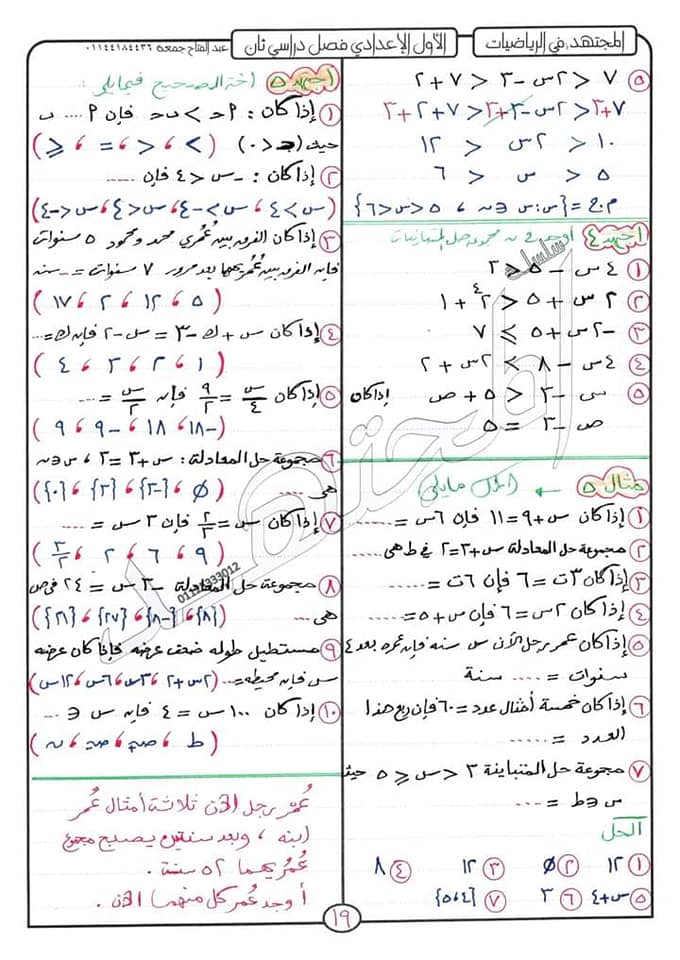 المجتهد في الرياضيات
الأول الإعدادي فصل دراسي ثان
عبد الفتاح جمعه ٠١١٤٤١٨٤٤٣٦
٥ ٧ < ٢س - ٣ < ٧ + ٢
٧ + ٣ < ٢س - ٣ + ٣ < ٧ + ٢ + ٣
١٠ < ٢س < ١٢
٥ < س < ٦
م.ح = {س : س ∈ ن ، ٥ < س < ٦}
اجتهد ٤ أوجد في ن مجموعة حل المتباينات
١ ٤ س - ٥ ≤ ٣
٢ ٢ س + ٥ < ٢⁴ + ١
٣ -٢س + ٥ ≥ ٧
٤ ٤س - ٨ > ٢س + ٢
٥ س - ٣ < ٥ + ص إذا كان
ص - ٣ = ٥
مثال ٥ ← أكمل مايلي
١ إذا كان س + ٩ = ١١ فإن ٦س = .....
٢ مجموعة حل المعادلة س + ٣ = ٢ في ط هي
٣ إذا كان ٣ت = ٦ فإن ٦ت = .....
٤ إذا كان ٢س = ٦ فإن س + ٥ = .....
٥ إذا كان عمر رجل الآن س سنة فإن عمره بعد ٤
سنوات = .... سنة
٦ إذا كان خمسة أمثال عدد = ٦٠ فإن ربع هذا
العدد = .....
٧ مجموعة حل المتباينة ٣ < س ≤ ٥ حيث
س ∈ ط = ...
الحل
١ ١٢ ٢ Ø ٣ ١٢ ٤ ٨
٥ س + ٤ ٦ ٣ ٧ {٥،٤}
اجتهد ٥ اختر الصحيح فيمايلي
١ إذا كان : ٢حـ > ب حـ فإن ٢ .... ب
حيث (حـ < ٠) ( > ، < ، = ، ≤ )
٢ إذا كان : -س < ٤ فإن ....
(س > ٤ ، س > -٤ ، س < ٤ ، س < -٤)
٣ إذا كان الفرق بين عُمري محمد ومحمود ٥ سنوات
فإن الفرق بين عُمريهما بعد مرور ٧ سنوات = ـ سنة
( ٥ ، ١٢ ، ٢ ، ١٧ )
٤ إذا كان س + ك - ٣ = س - ٢ فإن ك = ...
( ١ ، ٢ ، ٣ ، ٤ )
٥ إذا كان س/٤ = ٩/٢ فإن س/٢ = ...
( -١٨ ، ١٨ ، -٩ ، ٩ )
٦ مجموعة حل المعادلة : س + ٣ = ٣ ، س ∈ ن
هي .... ( Ø ، {-٣} ، {٣} ، {٠} )
٧ إذا كان س = ٢/٣ فإن ٣ س = ...
( ٩ ، ٦ ، ٢ ، ٣/٢ )
٨ مجموعة حل المعادلة -٣ س = ٢٤ في ص
هي .... ({٨} ، {-٨} ، {٢٧} ، {٢١})
٩ مستطيل طوله ضعف عرضه فإذا كان عرضه
س فإن محيطه = ... (٢س + ٢ ، ٣س ، ٦س ، ١٢س)
١٠ إذا كان ١٠٠ س = ٤ فإن س ∈ ...
عُمر رجل الآن ثلاثة أمثال عُمر
ابنه ، وبعد سنتين يصبح مجموع
عُمُريهما ٥٢ سنة .
أوجد عُمر كل منهما الآن .
١٩